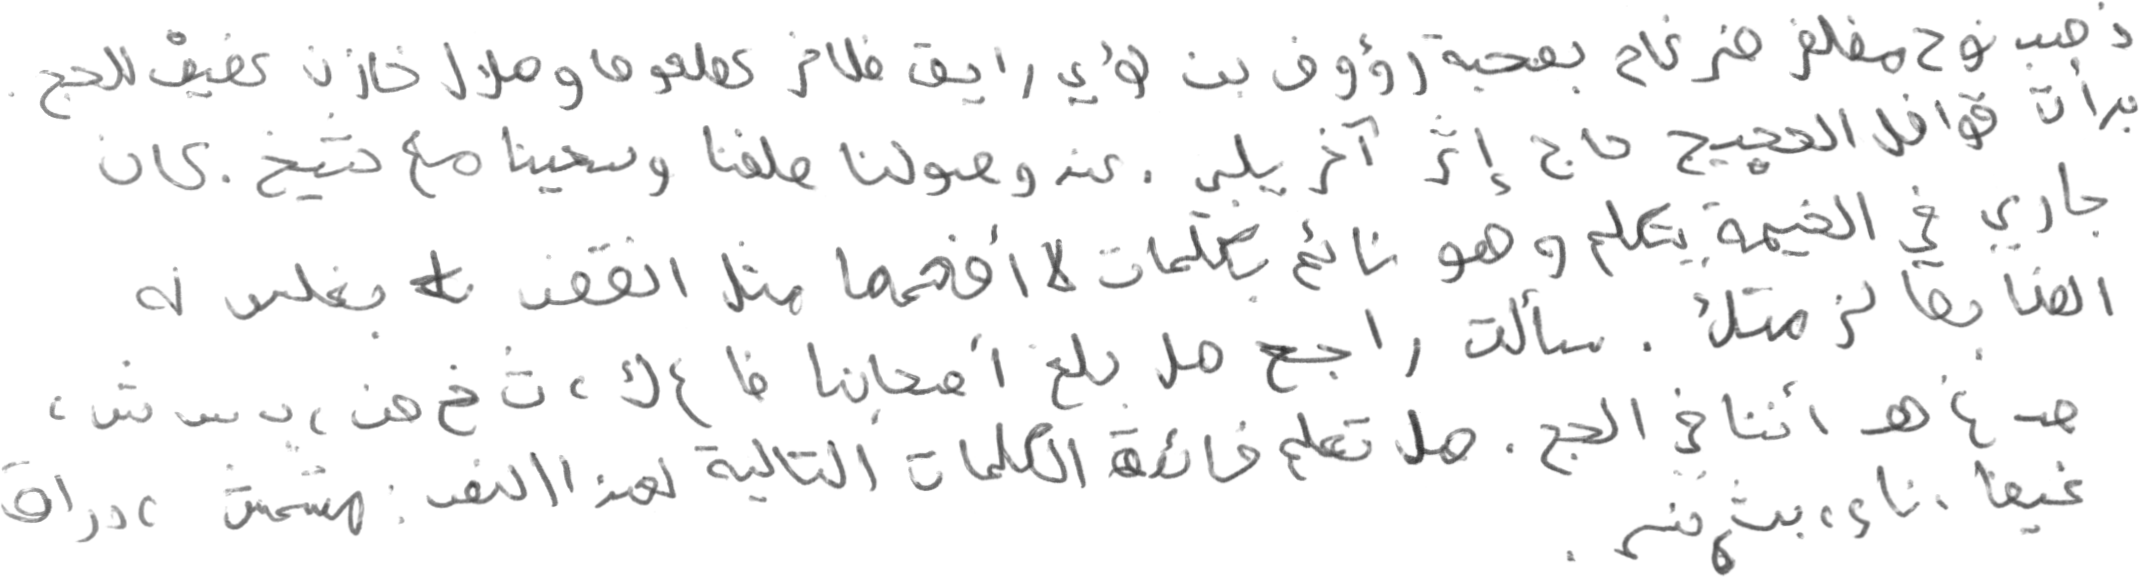 ذهب نوح مظفر ضرغام بصحبة رؤوف بن لؤي رايق ظافر كعلعوما وهلال خازن عفيف للحج .
بدأت قوافل الحجيج حاج إثر آخر يلبي . عند وصولنا طفنا وسعينا مع شيخ . كان
جاري في الخيمة يتكلم وهو نائم بكلمات لا أفهمها مثل انقض بغلس له
الضابط لزمتك . سألت راجح هل بلغ أصحابنا ظ ع ك ، ث خ هن ، د س ش ،
صد غ هـ أننا في الحج . هل تعلم فائدة الكلمات التالية لهذا النص : مشمش ، دراق
غيظ ، ناء ، بث ، ضر .